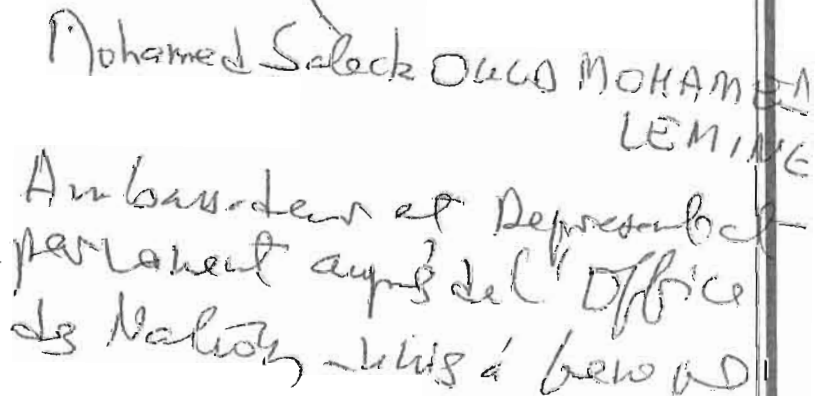 Mohamed Saleck OULD MOHAMED
LEMINE
Ambassadeur et Représentant
permanent auprès de l'Office
des Nations Unies à Genève